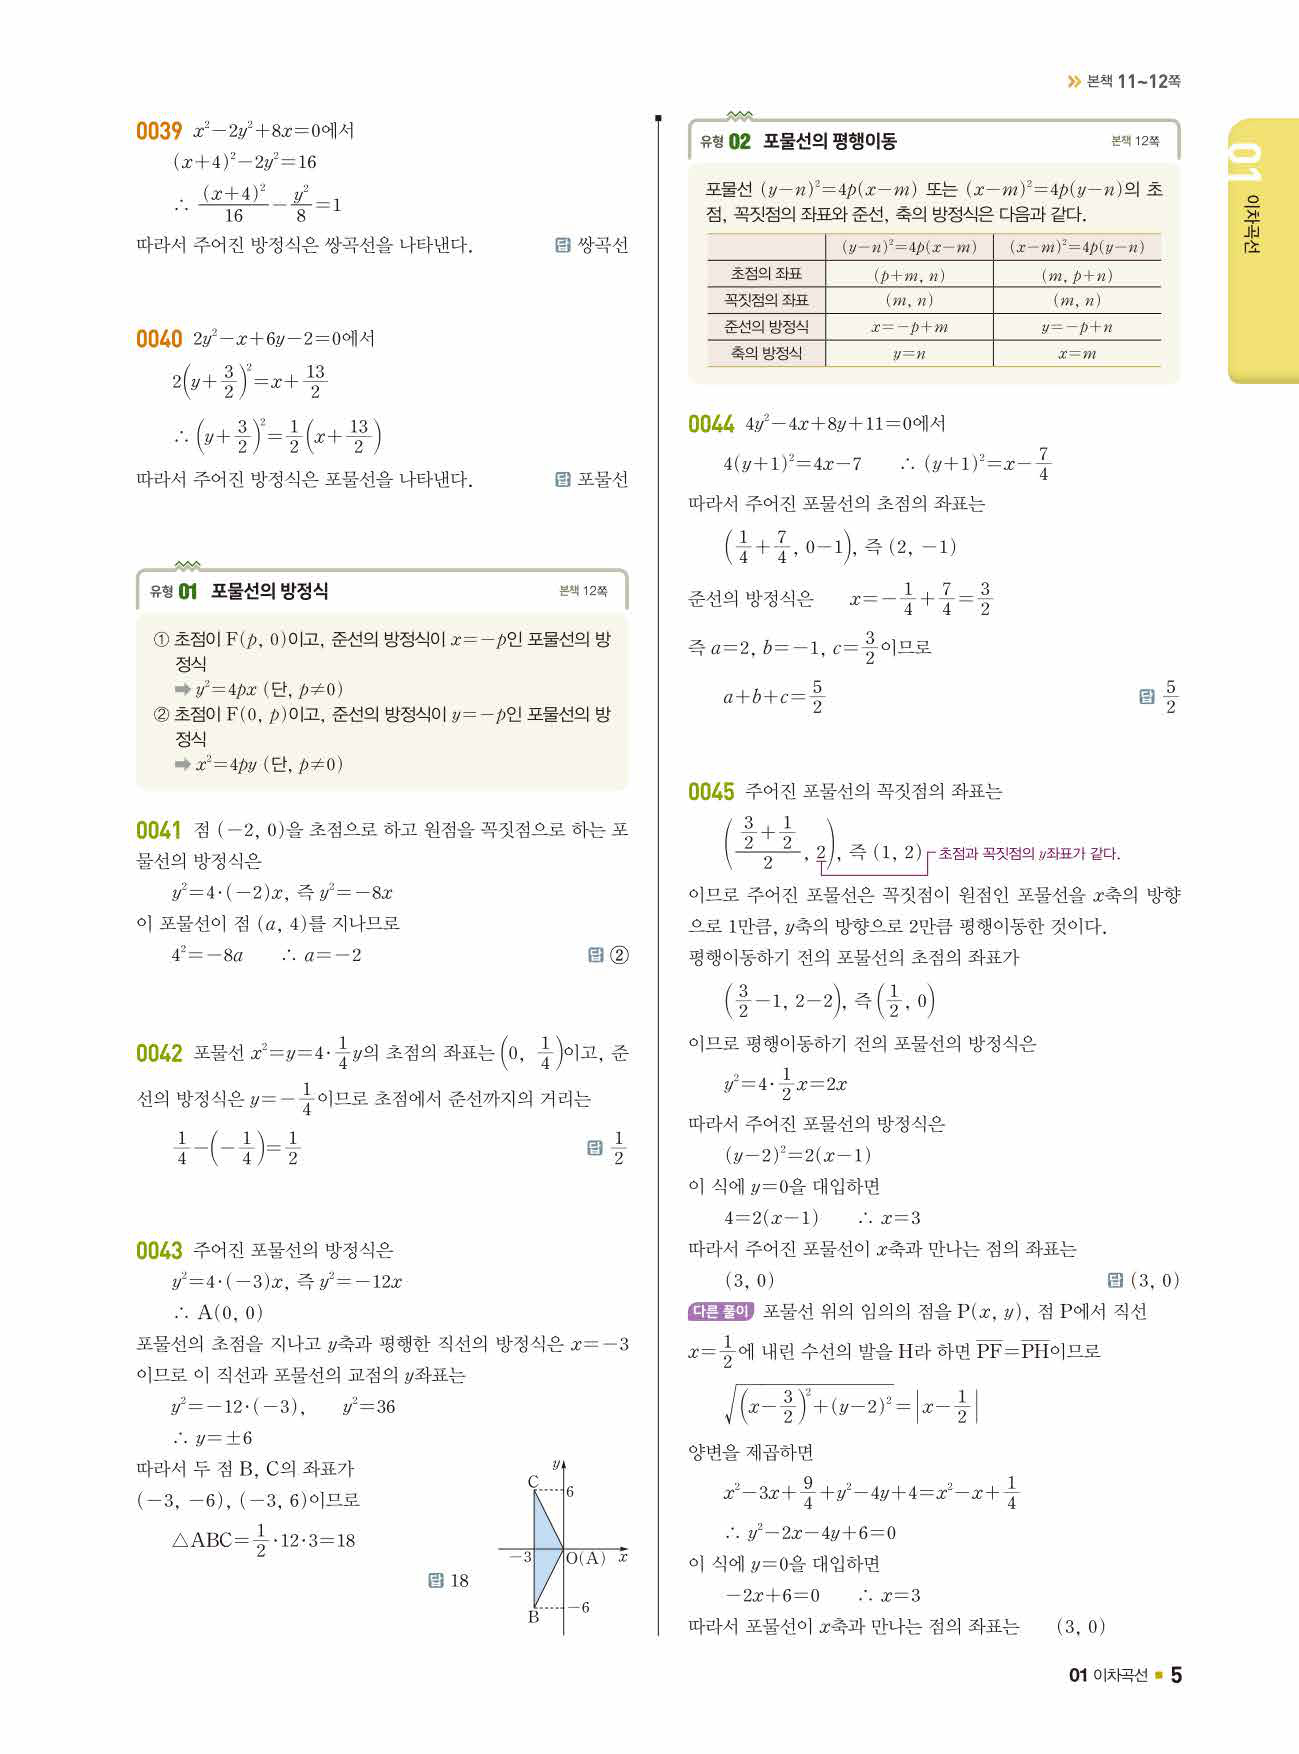 본책 11~12쪽
0039 x²-2y²+8x=0에서
(x+4)²-2y²=16
∴ (x+4)²/16-y²/8=1
따라서 주어진 방정식은 쌍곡선을 나타낸다. 답 쌍곡선
0040 2y²-x+6y-2=0에서
2(y+3/2)²=x+13/2
∴ (y+3/2)²=1/2(x+13/2)
따라서 주어진 방정식은 포물선을 나타낸다. 답 포물선
유형 01 포물선의 방정식 본책 12쪽
① 초점이 F(p, 0)이고, 준선의 방정식이 x=-p인 포물선의 방
정식
➡ y²=4px (단, p≠0)
② 초점이 F(0, p)이고, 준선의 방정식이 y=-p인 포물선의 방
정식
➡ x²=4py (단, p≠0)
0041 점 (-2, 0)을 초점으로 하고 원점을 꼭짓점으로 하는 포
물선의 방정식은
y²=4·(-2)x, 즉 y²=-8x
이 포물선이 점 (a, 4)를 지나므로
4²=-8a ∴ a=-2 답 ②
0042 포물선 x²=y=4·1/4y의 초점의 좌표는 (0, 1/4)이고, 준
선의 방정식은 y=-1/4이므로 초점에서 준선까지의 거리는
1/4-(-1/4)=1/2 답 1/2
0043 주어진 포물선의 방정식은
y²=4·(-3)x, 즉 y²=-12x
∴ A(0, 0)
포물선의 초점을 지나고 y축과 평행한 직선의 방정식은 x=-3
이므로 이 직선과 포물선의 교점의 y좌표는
y²=-12·(-3), y²=36
∴ y=±6
따라서 두 점 B, C의 좌표가
(-3, -6), (-3, 6)이므로
△ABC=1/2·12·3=18
답 18
y
C
6
-3
O(A)
x
B
-6
유형 02 포물선의 평행이동 본책 12쪽
포물선 (y-n)²=4p(x-m) 또는 (x-m)²=4p(y-n)의 초
점, 꼭짓점의 좌표와 준선, 축의 방정식은 다음과 같다.
(y-n)²=4p(x-m) (x-m)²=4p(y-n)
초점의 좌표 (p+m, n) (m, p+n)
꼭짓점의 좌표 (m, n) (m, n)
준선의 방정식 x=-p+m y=-p+n
축의 방정식 y=n x=m
0044 4y²-4x+8y+11=0에서
4(y+1)²=4x-7 ∴ (y+1)²=x-7/4
따라서 주어진 포물선의 초점의 좌표는
(1/4+7/4, 0-1), 즉 (2, -1)
준선의 방정식은 x=-1/4+7/4=3/2
즉 a=2, b=-1, c=3/2이므로
a+b+c=5/2 답 5/2
0045 주어진 포물선의 꼭짓점의 좌표는
((3/2+1/2)/2, 2), 즉 (1, 2) 초점과 꼭짓점의 y좌표가 같다.
이므로 주어진 포물선은 꼭짓점이 원점인 포물선을 x축의 방향
으로 1만큼, y축의 방향으로 2만큼 평행이동한 것이다.
평행이동하기 전의 포물선의 초점의 좌표가
(3/2-1, 2-2), 즉 (1/2, 0)
이므로 평행이동하기 전의 포물선의 방정식은
y²=4·1/2x=2x
따라서 주어진 포물선의 방정식은
(y-2)²=2(x-1)
이 식에 y=0을 대입하면
4=2(x-1) ∴ x=3
따라서 주어진 포물선이 x축과 만나는 점의 좌표는
(3, 0) 답 (3, 0)
다른 풀이 포물선 위의 임의의 점을 P(x, y), 점 P에서 직선
x=1/2에 내린 수선의 발을 H라 하면 P̅F̅=P̅H̅이므로
√((x-3/2)²+(y-2)²)=|x-1/2|
양변을 제곱하면
x²-3x+9/4+y²-4y+4=x²-x+1/4
∴ y²-2x-4y+6=0
이 식에 y=0을 대입하면
-2x+6=0 ∴ x=3
따라서 포물선이 x축과 만나는 점의 좌표는 (3, 0)
01 이차곡선
01 이차곡선 5